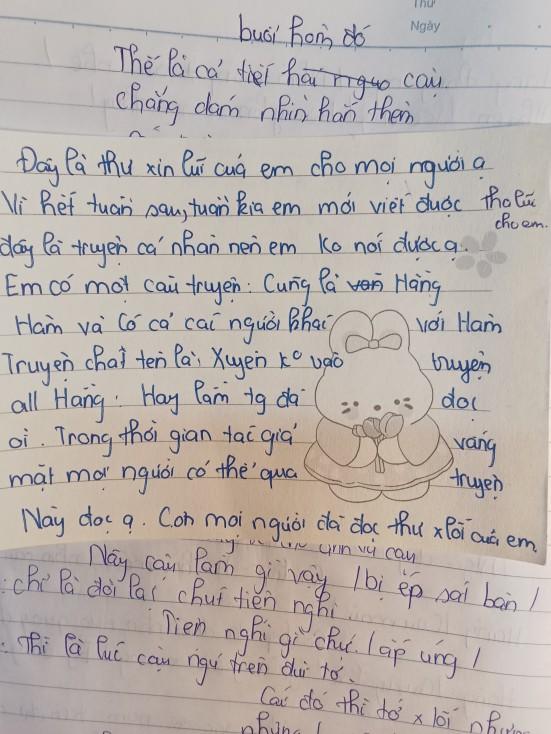 Thứ
Ngày
buổi hôm đó
Thế là cả tiết hai nguo cậu
chẳng dám nhìn hắn thêm
Đây là thư xin lũi cuả em cho mọi người ạ
Vì hết tuần sau, tuần kia em mới viết được tha lũi
cho em.
đây là truyện cá nhân nên em ko nói được ạ.
Em có một câu truyện: Cũng là văn Hằng
Ham và có cả cái người khai với Ham
Truyện chat tên là: Xuyên ko vào truyện
all Hằng. Hay lắm tg đã đọc
oi. Trong thời gian tác giả vắng
mặt mọi người có thể qua truyện
Này đọc ạ. Còn mọi người đã đọc thư x lỗi cuả em
Này cậu làm gì vậy / bị ép sát bàn /
: chỉ là đòi lại chút tiện nghi.
Tiện nghi gì chứ. / ấp úng /
: Thì là lúc cậu ngủ trên đùi tớ.
Cái đó thì tớ x lỗi nhưng
nhưng /